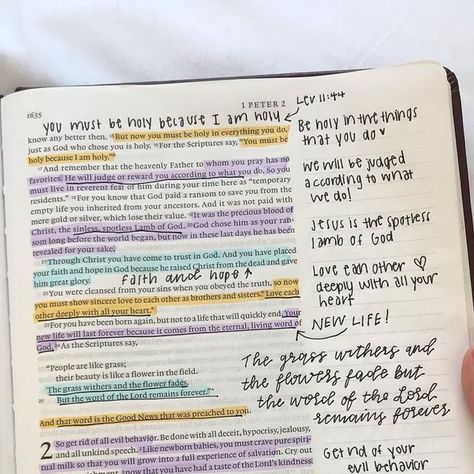 you must be holy because I am holy
Lev 11:44
1635
1 PETER 2
know any better then. But now you must be holy in everything you do,
just as God who chose you is holy. For the Scriptures say, “You must be
holy because I am holy.”
And remember that the heavenly Father to whom you pray has no
favorites. He will judge or reward you according to what you do. So you
must live in reverent fear of him during your time here as “temporary
residents.” For you know that God paid a ransom to save you from the
empty life you inherited from your ancestors. And it was not paid with
mere gold or silver, which lose their value. It was the precious blood of
Christ, the sinless, spotless Lamb of God. God chose him as your ran-
som long before the world began, but now in these last days he has been
revealed for your sake.
Through Christ you have come to trust in God. And you have placed
your faith and hope in God because he raised Christ from the dead and gave
him great glory.
faith and hope
You were cleansed from your sins when you obeyed the truth, so now
you must show sincere love to each other as brothers and sisters. Love each
other deeply with all your heart.
For you have been born again, but not to a life that will quickly end. Your
new life will last forever because it comes from the eternal, living word of
God. As the Scriptures say,
“People are like grass;
their beauty is like a flower in the field.
The grass withers and the flower fades.
But the word of the Lord remains forever.”
And that word is the Good News that was preached to you.
2 So get rid of all evil behavior. Be done with all deceit, hypocrisy, jealousy,
and all unkind speech. Like newborn babies, you must crave pure spiri-
tual milk so that you will grow into a full experience of salvation. Cry out
now that you have had a taste of the Lord's kindness
Be holy in the things
that you do ♥
we will be judged
according to what
we do!
Jesus is the spotless
lamb of God
Love each other ♡
deeply with all your
heart
NEW LIFE!
The grass withers and
the flowers fade but
the word of the Lord
remains forever
Get rid of
your evil behavior